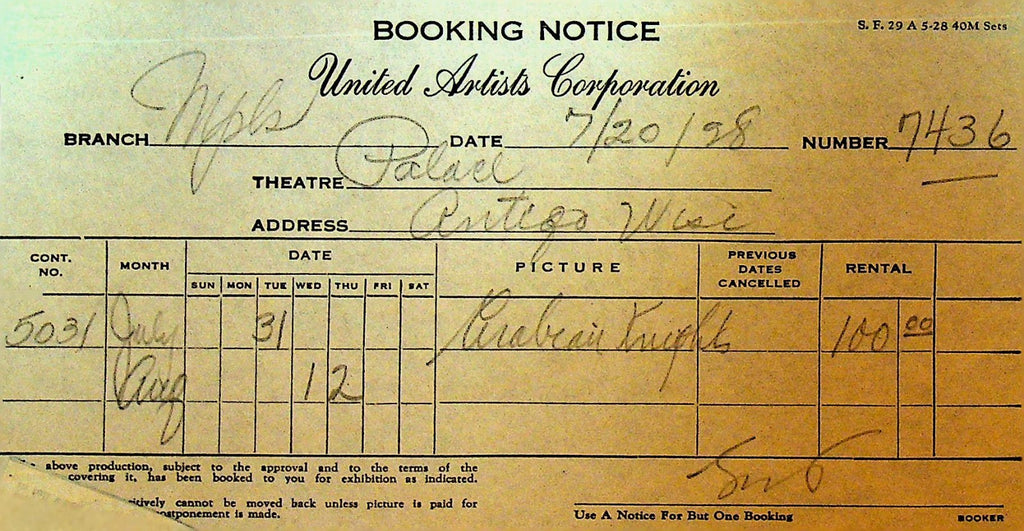 BOOKING NOTICE
S. F. 29 A 5-28 40M Sets
United Artists Corporation
BRANCH Mpls DATE 7/20/28 NUMBER 7436
THEATRE Palace
ADDRESS Antigo Wisc
CONT. NO. MONTH DATE PICTURE PREVIOUS DATES CANCELLED RENTAL
SUN MON TUE WED THU FRI SAT
5031 July 31 Arabian Knights 100 00
Aug 1 2
above production, subject to the approval and to the terms of the
covering it, has been booked to you for exhibition as indicated.
cannot be moved back unless picture is paid for
is made.
Use A Notice For But One Booking BOOKER